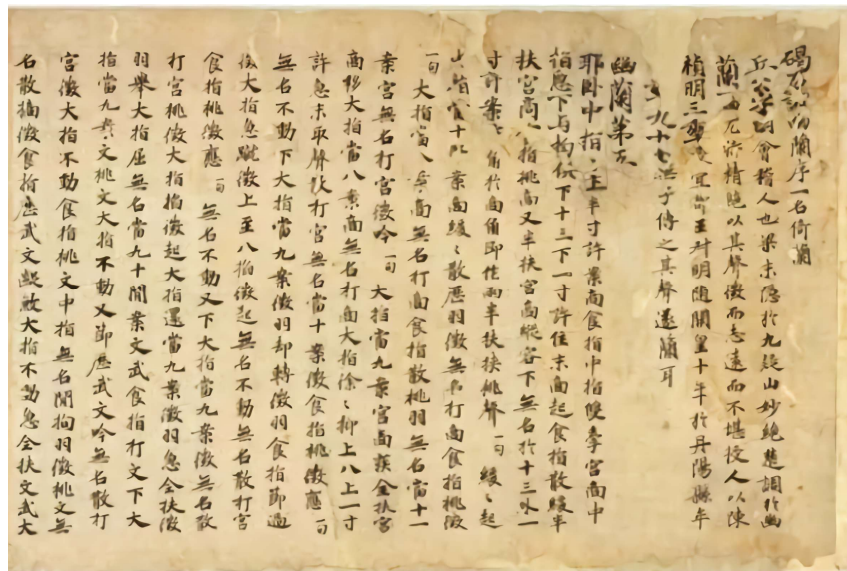 碣石調幽蘭序一名倚蘭
丘公字明會稽人也梁末隱於九疑山妙絕楚調於幽
蘭一曲尤特精絕以其聲微而志遠而不堪授人以陳
禎明三年授宜都王叔明隨開皇十年於丹陽縣卒
年九十七無子傳之其聲遂簡耳
幽蘭第五
耶臥中指上半寸許案商食指中指雙牽宮商中
指急下与拘俱下十三下一寸許住末商起食指散緩半
扶宮商食指挑商又半扶宮商縱容下無名於十三外一
寸許案商角於商角即作兩半扶挾挑聲一句緩緩起
無名當十案商緩緩散歷羽徵無名打商食指挑徵
一句大指當八案商無名打商食指散挑羽無名當十一
案宮無名打宮徵吟一句大指當九案宮商疾全扶宮
商移大指當八案商無名打商大指徐徐抑上八上一寸
許急末取聲散打宮無名當十案徵食指挑徵應一句
無名不動下大指當九案徵羽却轉徵羽食指節過
徵大指急蹴徵上至八指徵起無名不動無名散打宮
食指挑徵應一句無名不動又下大指當九案徵無名散
打宮挑徵大指掐徵起大指還當九案徵羽急全扶徵
羽舉大指屈無名當九十間案文武食指打文下大
指當九案文挑文大指不動又節歷武文吟無名散打
宮徵大指不動食指挑文中指無名間拘羽徵挑文無
名散摘徵食指歷武文蹴大指不動急全扶文武大